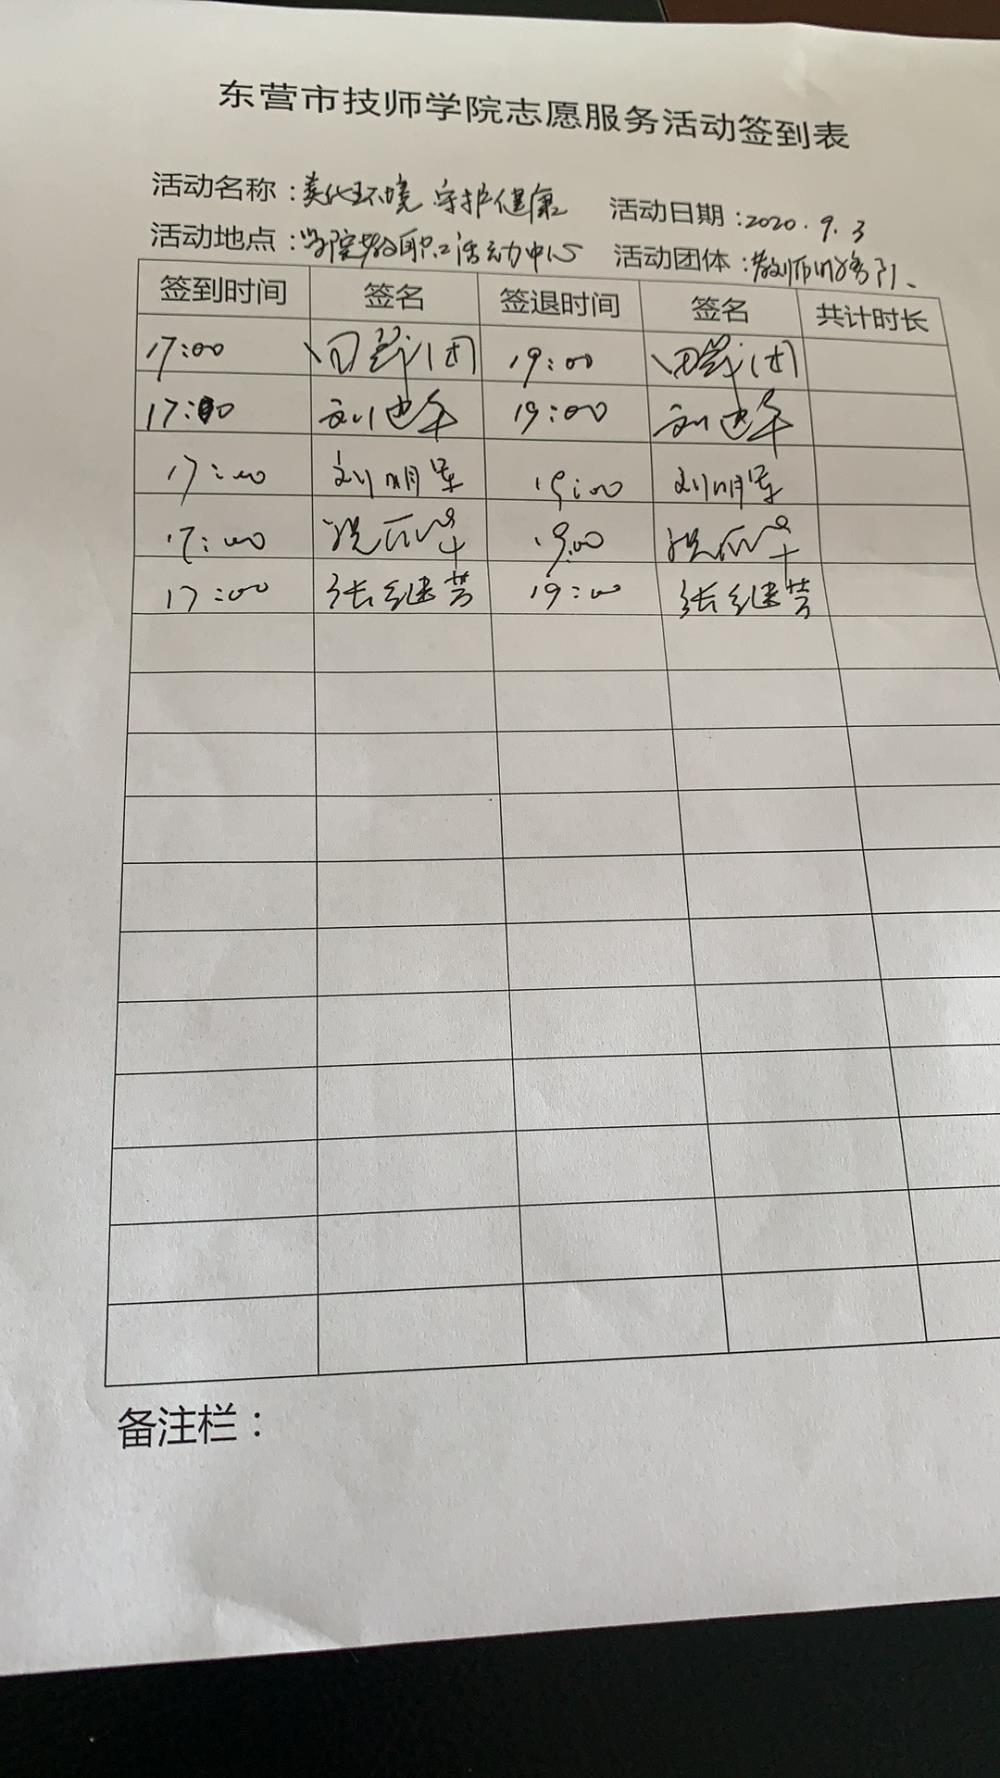 东营市技师学院志愿服务活动签到表
活动名称：美化环境 守护健康 活动日期：2020.9.3
活动地点：学院教职工活动中心 活动团体：教师
签到时间 签名 签退时间 签名 共计时长
17:00 19:00
17:00 刘建军 19:00 刘建军
17:00 刘明军 19:00 刘明军
17:00 19:00
17:00 张继芳 19:00 张继芳
备注栏：